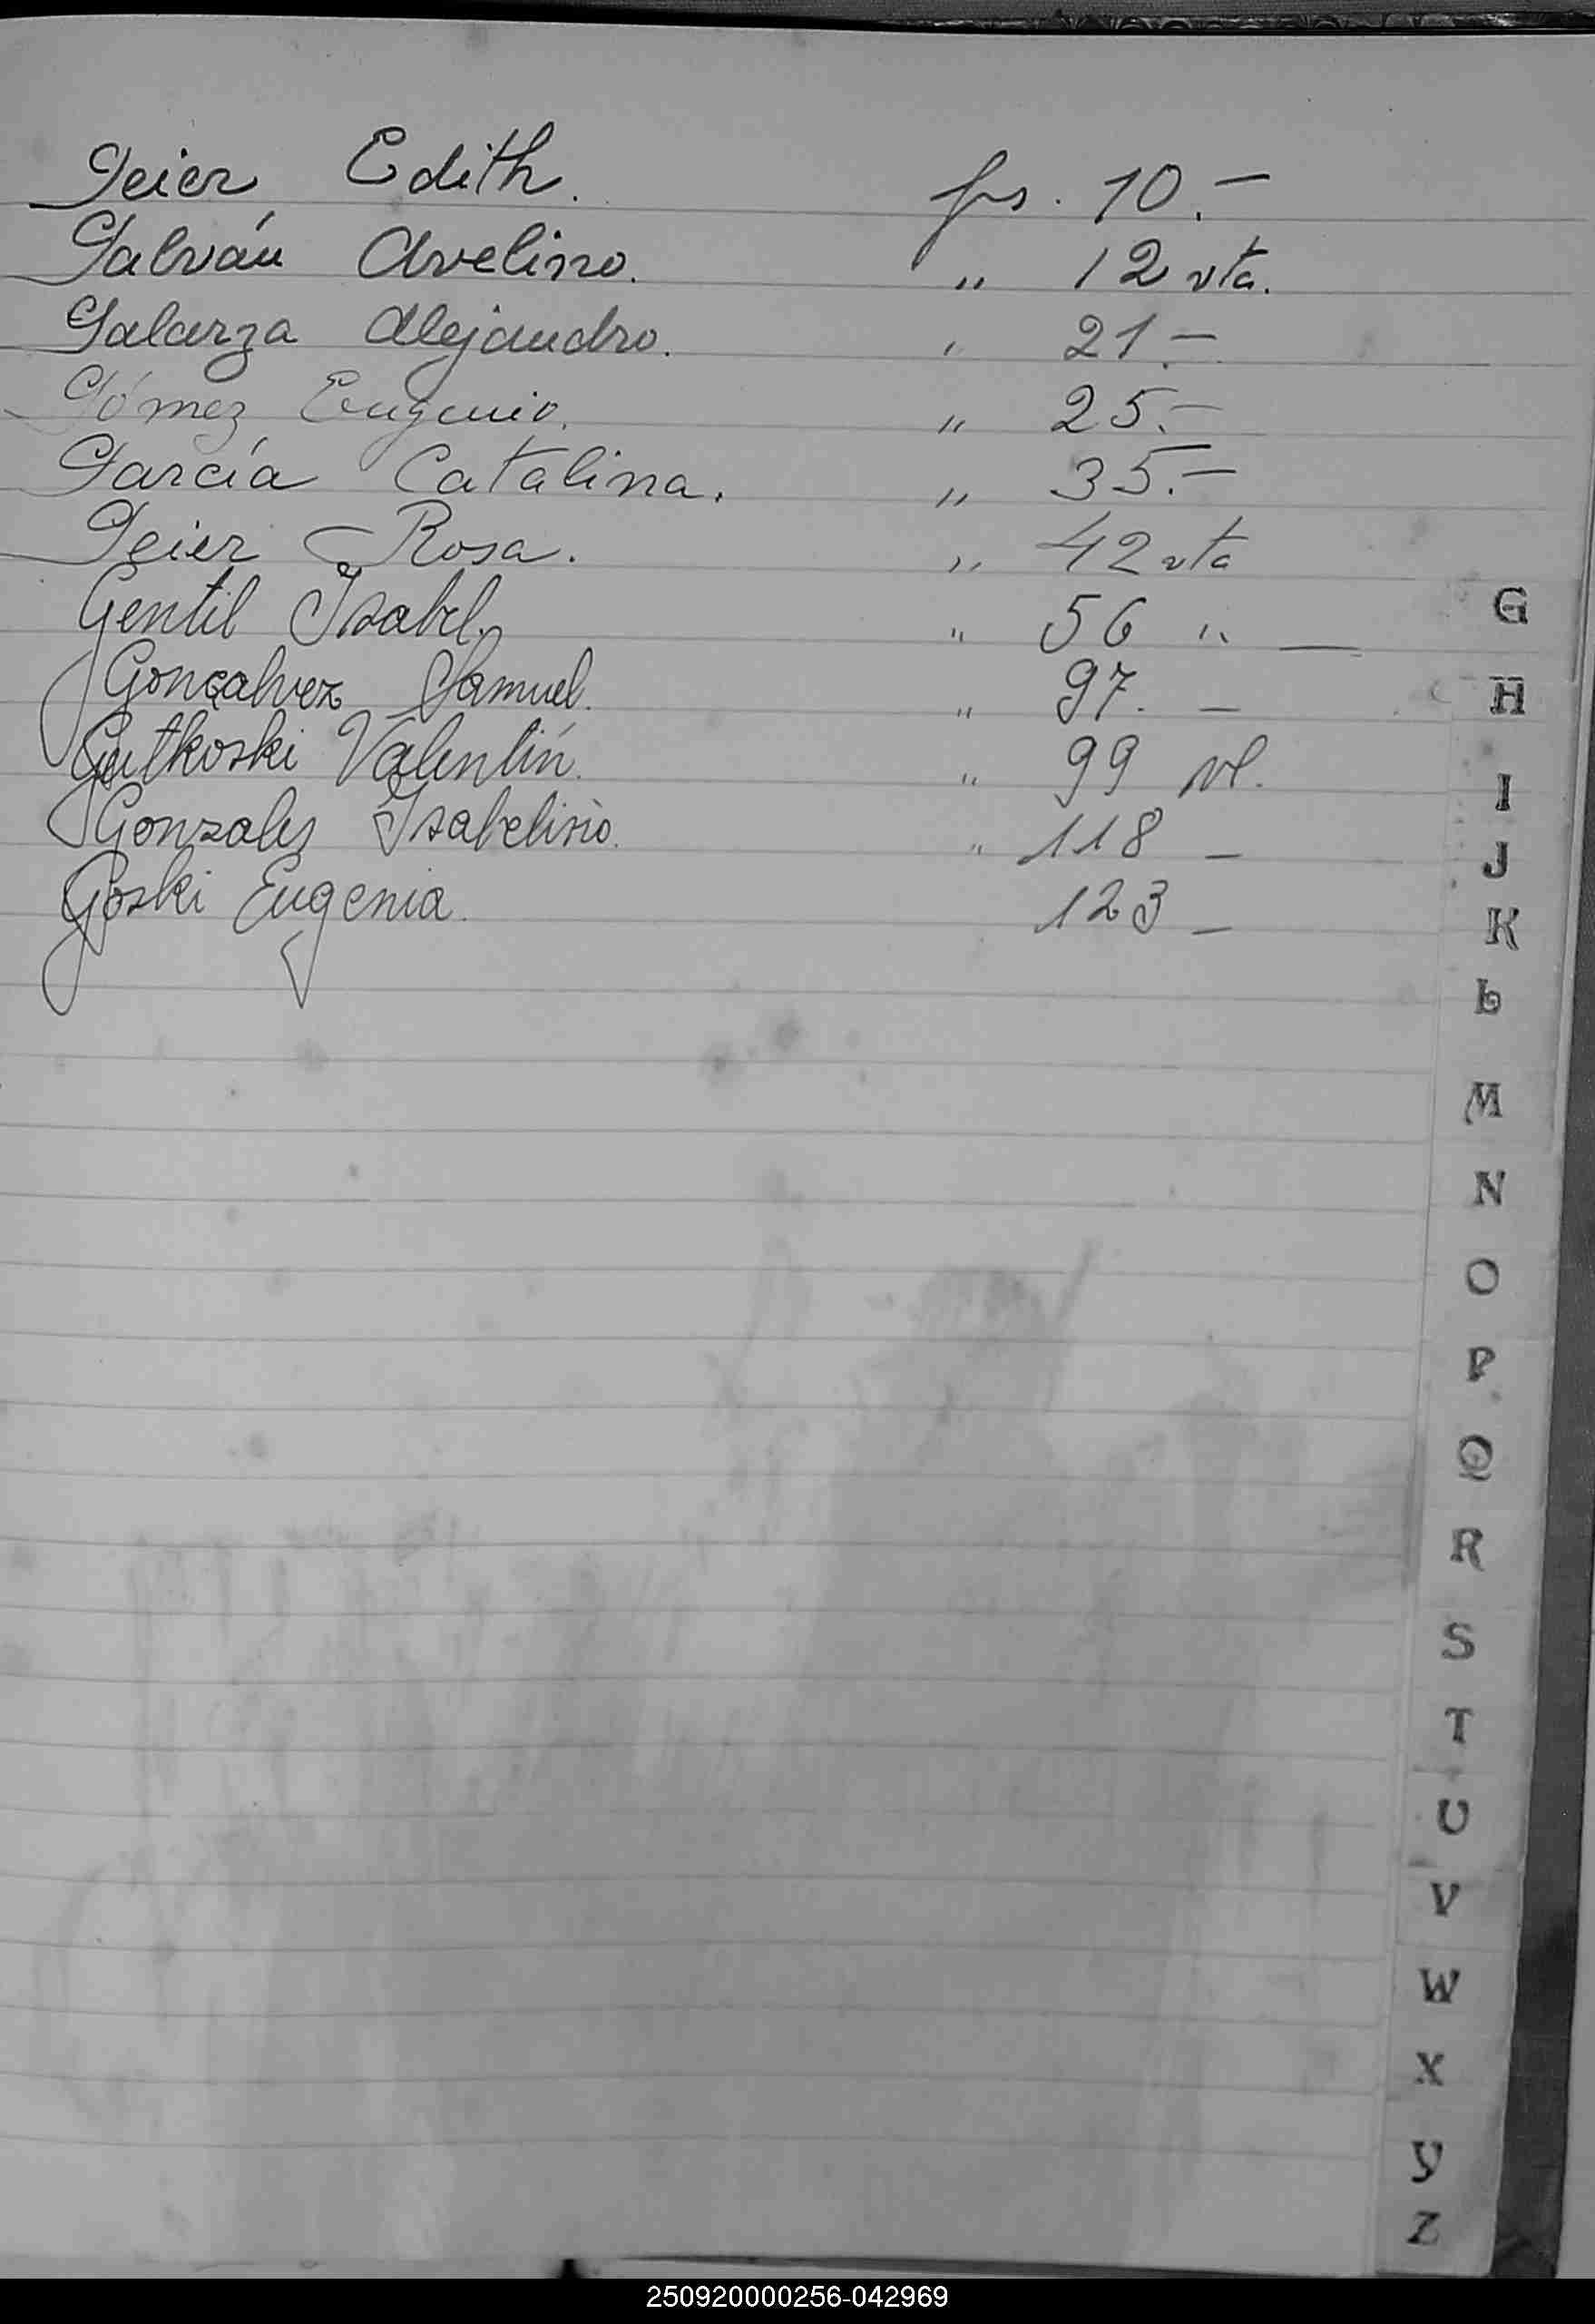 Geier Edith. fs. 10.-
Galván Avelino. " 12 vta.
Galarza Alejandro. " 21.-
Gómez Eugenio. " 25.-
García Catalina. " 35.-
Geier Rosa. " 42 vta
Gentil Isabel. " 56 " —
Gonçalvez Samuel. " 97. -
Gutkoski Valentín. " 99 vt.
Gonzales Isabelino. " 118 -
Goski Eugenia. 123 -
G
H
I
J
K
L
M
N
O
P
Q
R
S
T
U
V
W
X
Y
Z
250920000256-042969